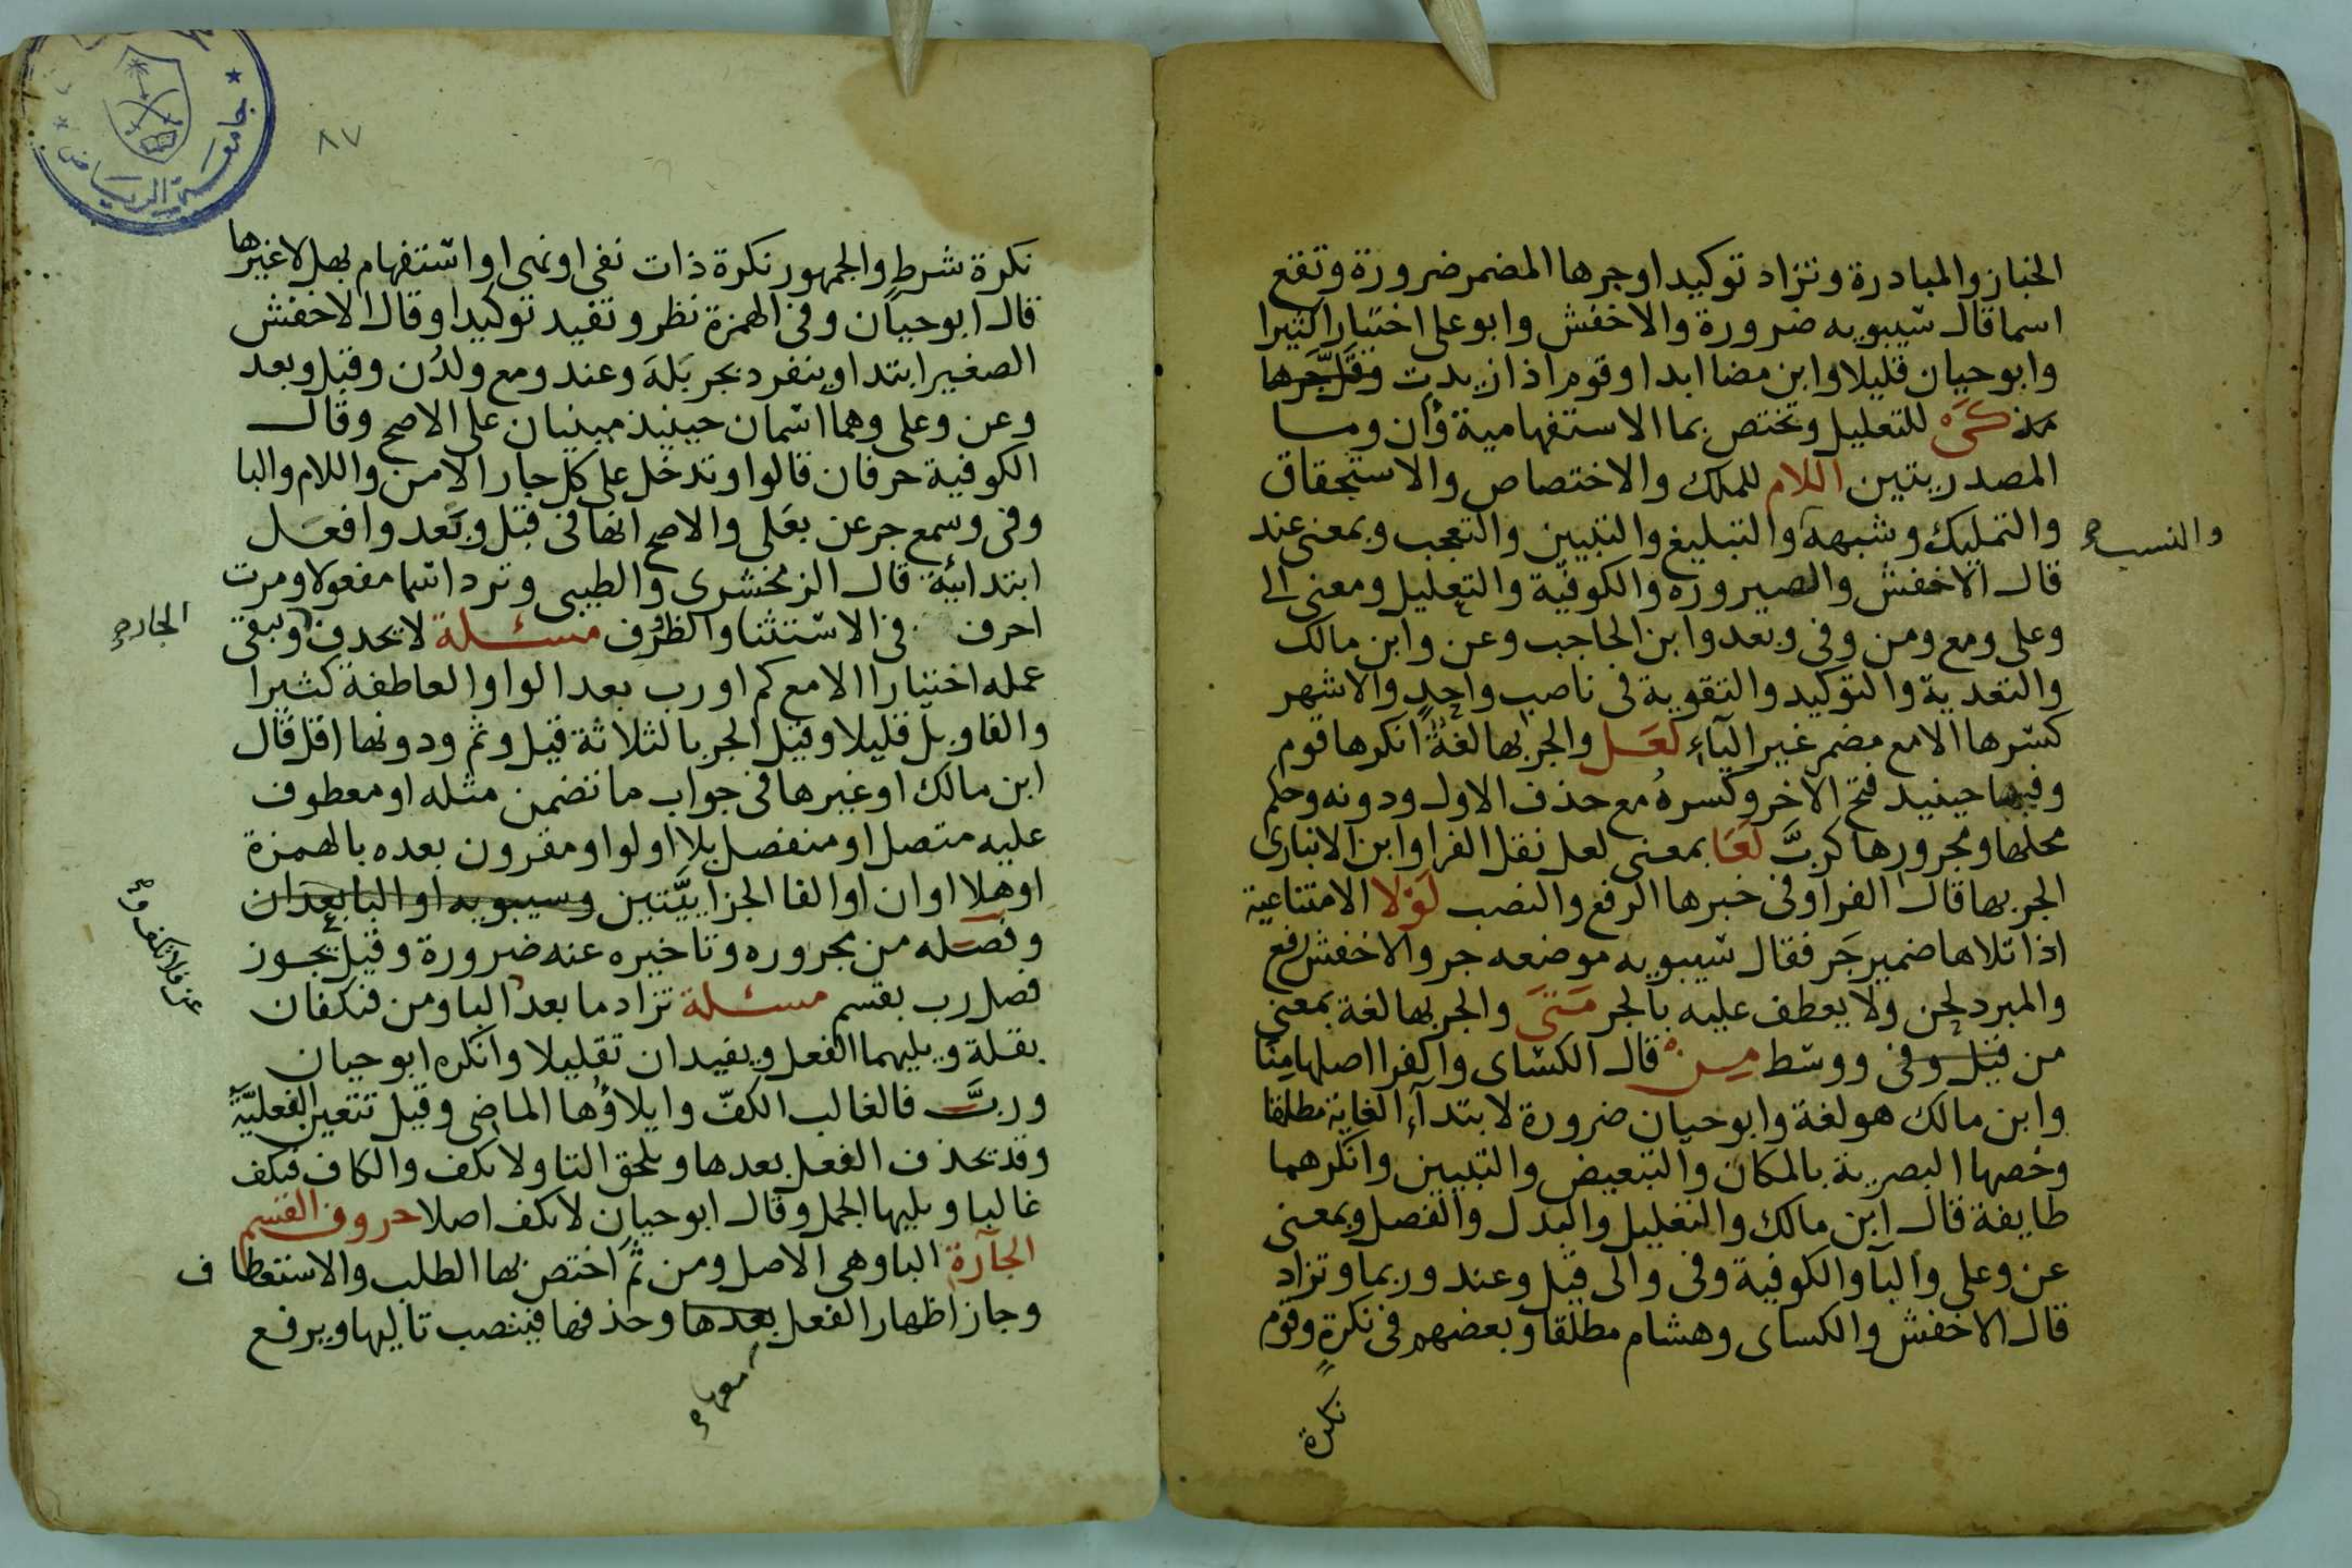 الخباز والمبادرة وتزاد توكيدا وجرها المضمر ضرورة وتقع
اسما قال سيبويه ضرورة والاخفش وابو على اختيارا كثيرا
وابو حيان قليلا وابن مضا ابدا وقوم اذا زيدت وقل جرها
كى للتعليل وتختص بما الاستفهامية وأن وما
المصدريتين اللام للملك والاختصاص والاستحقاق
والتمليك وشبهه والتبليغ والتبيين والتعجب وبمعنى عند
والنسب صح
قال الاخفش والصيروره والكوفية والتعليل ومعنى الى
وعلى ومع ومن وفى وبعد وابن الحاجب وعن وابن مالك
والتعدية والتوكيد والتقوية فى ناصب واحد والاشهر
كسرها الا مع مضمر غير اليآء لعل والجر بها لغة انكرها قوم
وفيها حينيد فتح الاخر وكسره مع حذف الاول ودونه وحكم
محلها ومجرورها كربَّ لَعَا بمعنى لعل نقل الفرا وابن الانبارى
الجر بها قال الفرا وفى خبرها الرفع والنصب لولا الامتناعية
اذا تلاها ضمير جر فقال سيبويه موضعه جر والاخفش رفع
والمبرد لحن ولا يعطف عليه بالجر متى والجر بها لغة بمعنى
من قيل وفى ووسط من قال الكساى والفرا اصلها مِنَا
وابن مالك هو لغة وابو حيان ضرورة لابتدآء الغاية مطلقا
وخصها البصرية بالمكان والتبعيض والتبيين وانكرهما
طايفة قال ابن مالك والتعليل والبدل والفصل وبمعنى
عن وعلى والبآ والكوفية وفى والى قيل وعند وربما وتزاد
قال الاخفش والكساى وهشام مطلقا وبعضهم فى نكرة وقوم
نكرة
٨٧
جامعة الرياض
نكرة شرط والجمهور نكرة ذات نفى او نهى او استفهام بهل لا غيرها
قال ابو حيان وفى الهمزة نظر وتفيد توكيدا وقال الاخفش
الصغير ابتدا وينفرد بجر بَلهَ وعند ومع ولدُن وقبل وبعد
وعن وعلى وهما اسمان حينيذ مبنيان على الاصح وقال
الكوفية حرفان قالوا وتدخل على كل جار الا من واللام والبا
وفى وسمع جر عن بعَلى والاصح انها فى قبل وبَعد وافعَل
ابتدائية قال الزمخشرى والطيبى وترد اسما مفعولا ومرت
احرف فى الاستثنا والظرف مسئلة لا يحدف ويبقى
الجار صح
عمله اختيارا الا مع كم او رب بعد الواو العاطفة كثيرا
والفا وبل قليلا وقيل الجر بالثلاثة قيل وثم ودونها اقل قال
ابن مالك او غيرها فى جواب ما تضمن مثله او معطوف
عليه متصل او منفصل بلا او لو او مقرون بعده بالهمزة
او هلا او ان او الفا الجزاييَّتين وسيبويه او البا بعد ان
وفصله من مجروره وتاخيره عنه ضرورة وقيل يجوز
فصل رب بقسم مسئلة تزاد ما بعد البا ومن فتكفان
عن فلا تكف و صح
بقلة ويليهما الفعل ويفيدان تقليلا وانكره ابو حيان
وربَّ فالغالب الكفّ وايلاؤها الماضى وقيل تتعين الفعليّة
وقد يحذف الفعل بعدها ويلحق التا ولا تكف والكاف فتكف
غالبا ويليها الجمل وقال ابو حيان لا تكف اصلا حروف القسم
الجآرة البا وهى الاصل ومن ثمَ اختص بها الطلب والاستعطاف
وجاز اظهار الفعل بعدها وحذفها فينصب تاليها ويرفع
معها صح